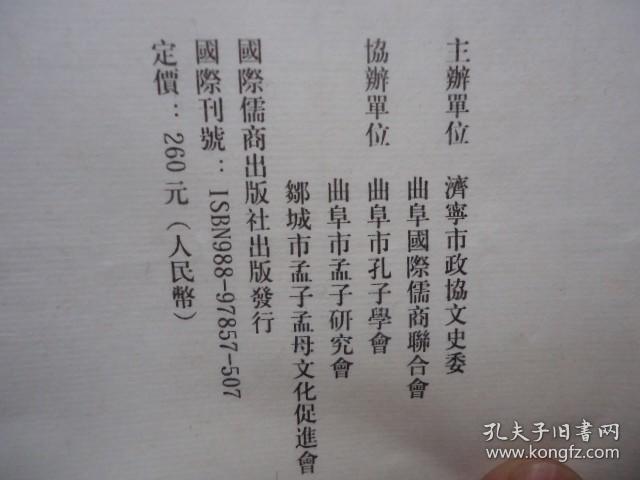 主辦單位　濟寧市政協文史委
曲阜國際儒商聯合會
協辦單位　曲阜市孔子學會
曲阜市孟子研究會
鄒城市孟子孟母文化促進會
國際儒商出版社出版發行
國際刊號：ISBN988-97857-507
定價：260元（人民幣）
孔夫子旧书网
www.kongfz.com